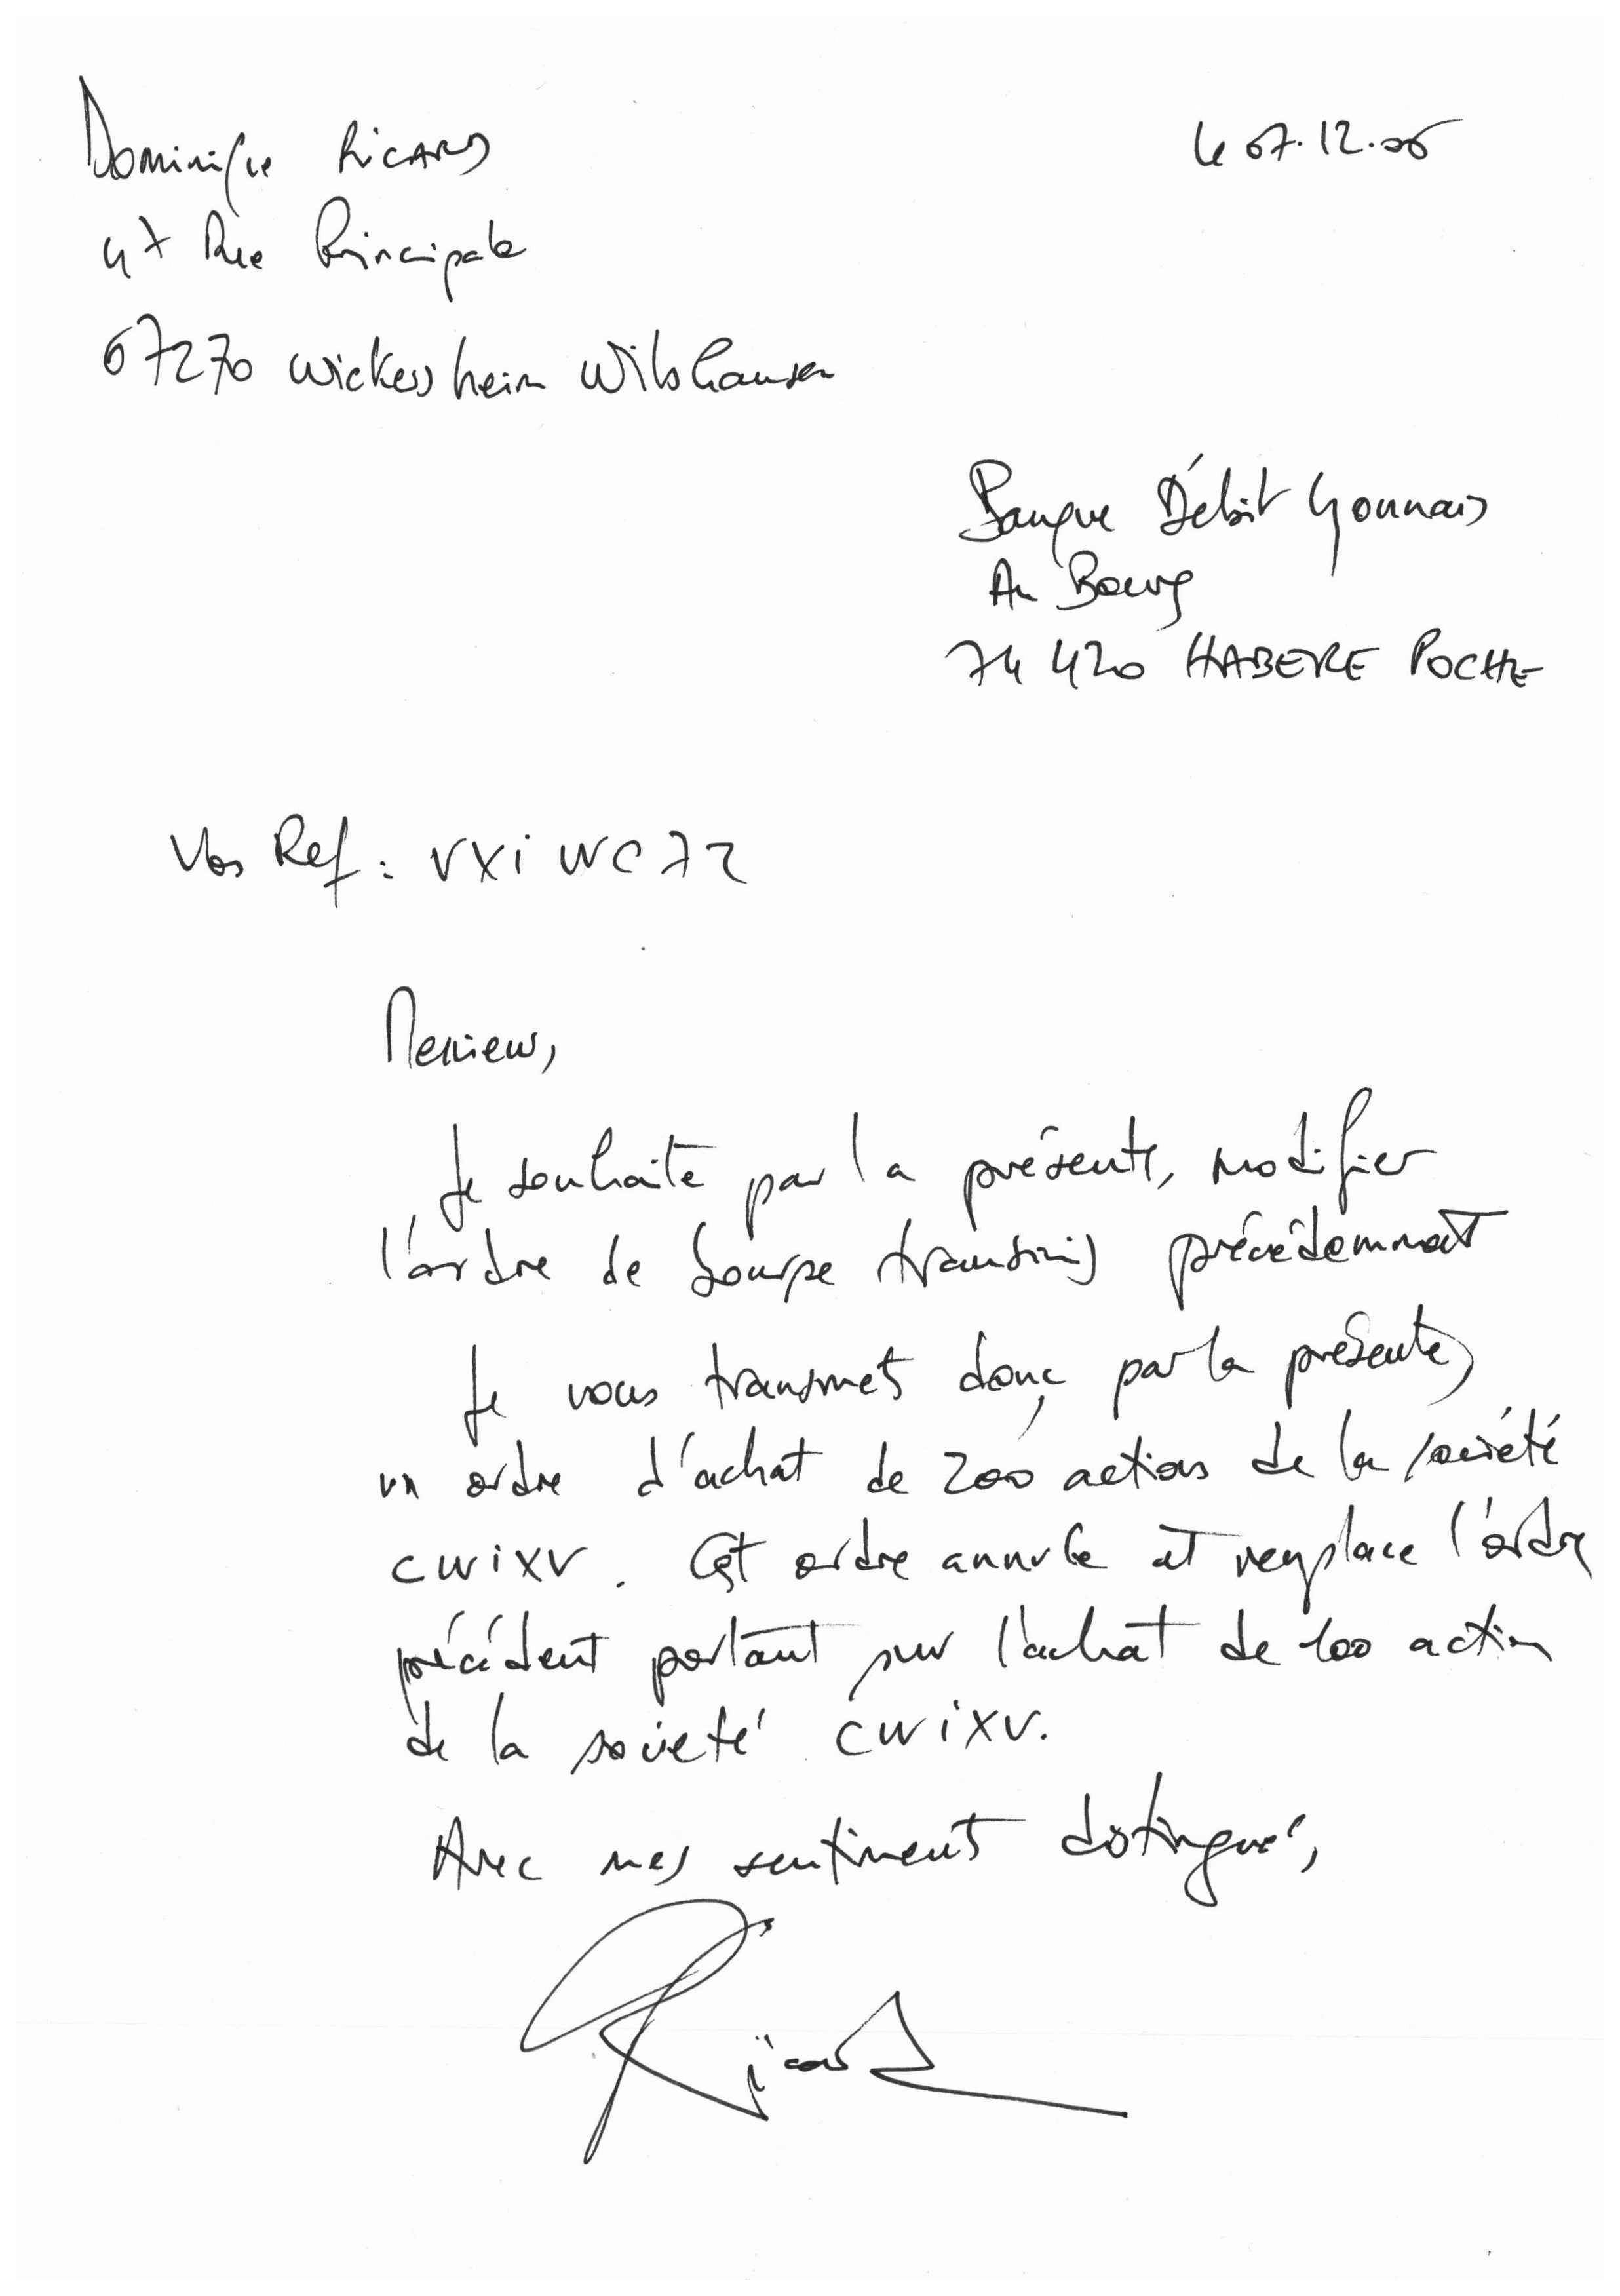 Dominique RICARD
le 07.12.06
47 Rue Principale
67270 Wickersheim Wilshausen
Banque Débit Lyonnais
Au Bourg
74 420 HABERE POCHE
Vos Ref : VXiWC72
Messieurs,
Je souhaite par la présente, modifier
l'ordre de bourse transmis précédemment
Je vous transmets donc, par la présente,
un ordre d'achat de 200 actions de la société
CWiXV. Cet ordre annule et remplace l'ordre
précédent portant sur l'achat de 100 action
de la société CWiXV.
Avec mes sentiments distingués,
Ricard